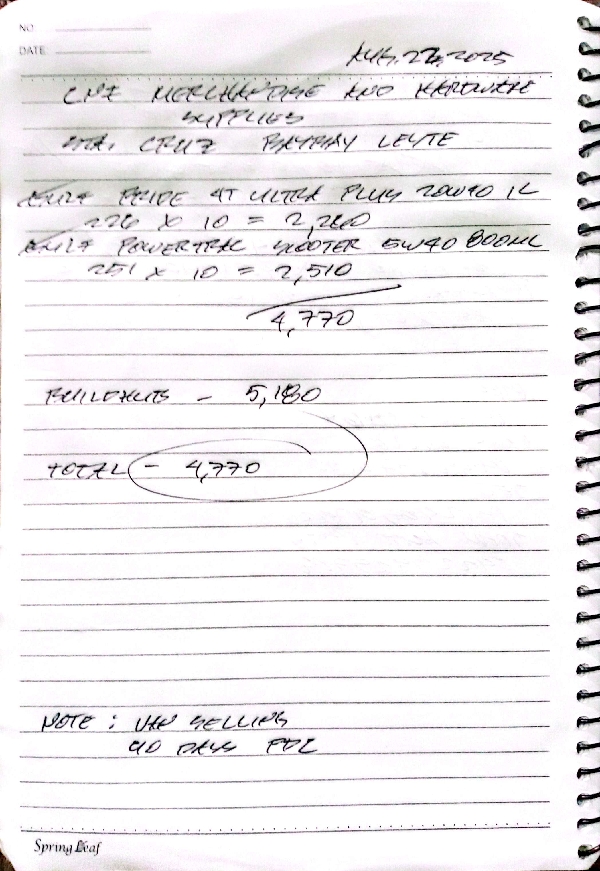 NO
DATE
AUG. 27, 2025
CNZ MERCHANDISE AND HARDWARE
SUPPLIES
STA. CRUZ BAYBAY LEYTE
PRIDE 4T ULTRA PLUS 20W40 1L
226 X 10 = 2,260
POWERTRAC SCOOTER 5W40 800ML
251 X 10 = 2,510
4,770
- 5,180
TOTAL - 4,770
NOTE : VAN SELLING
90 DAYS PDC
Spring Leaf